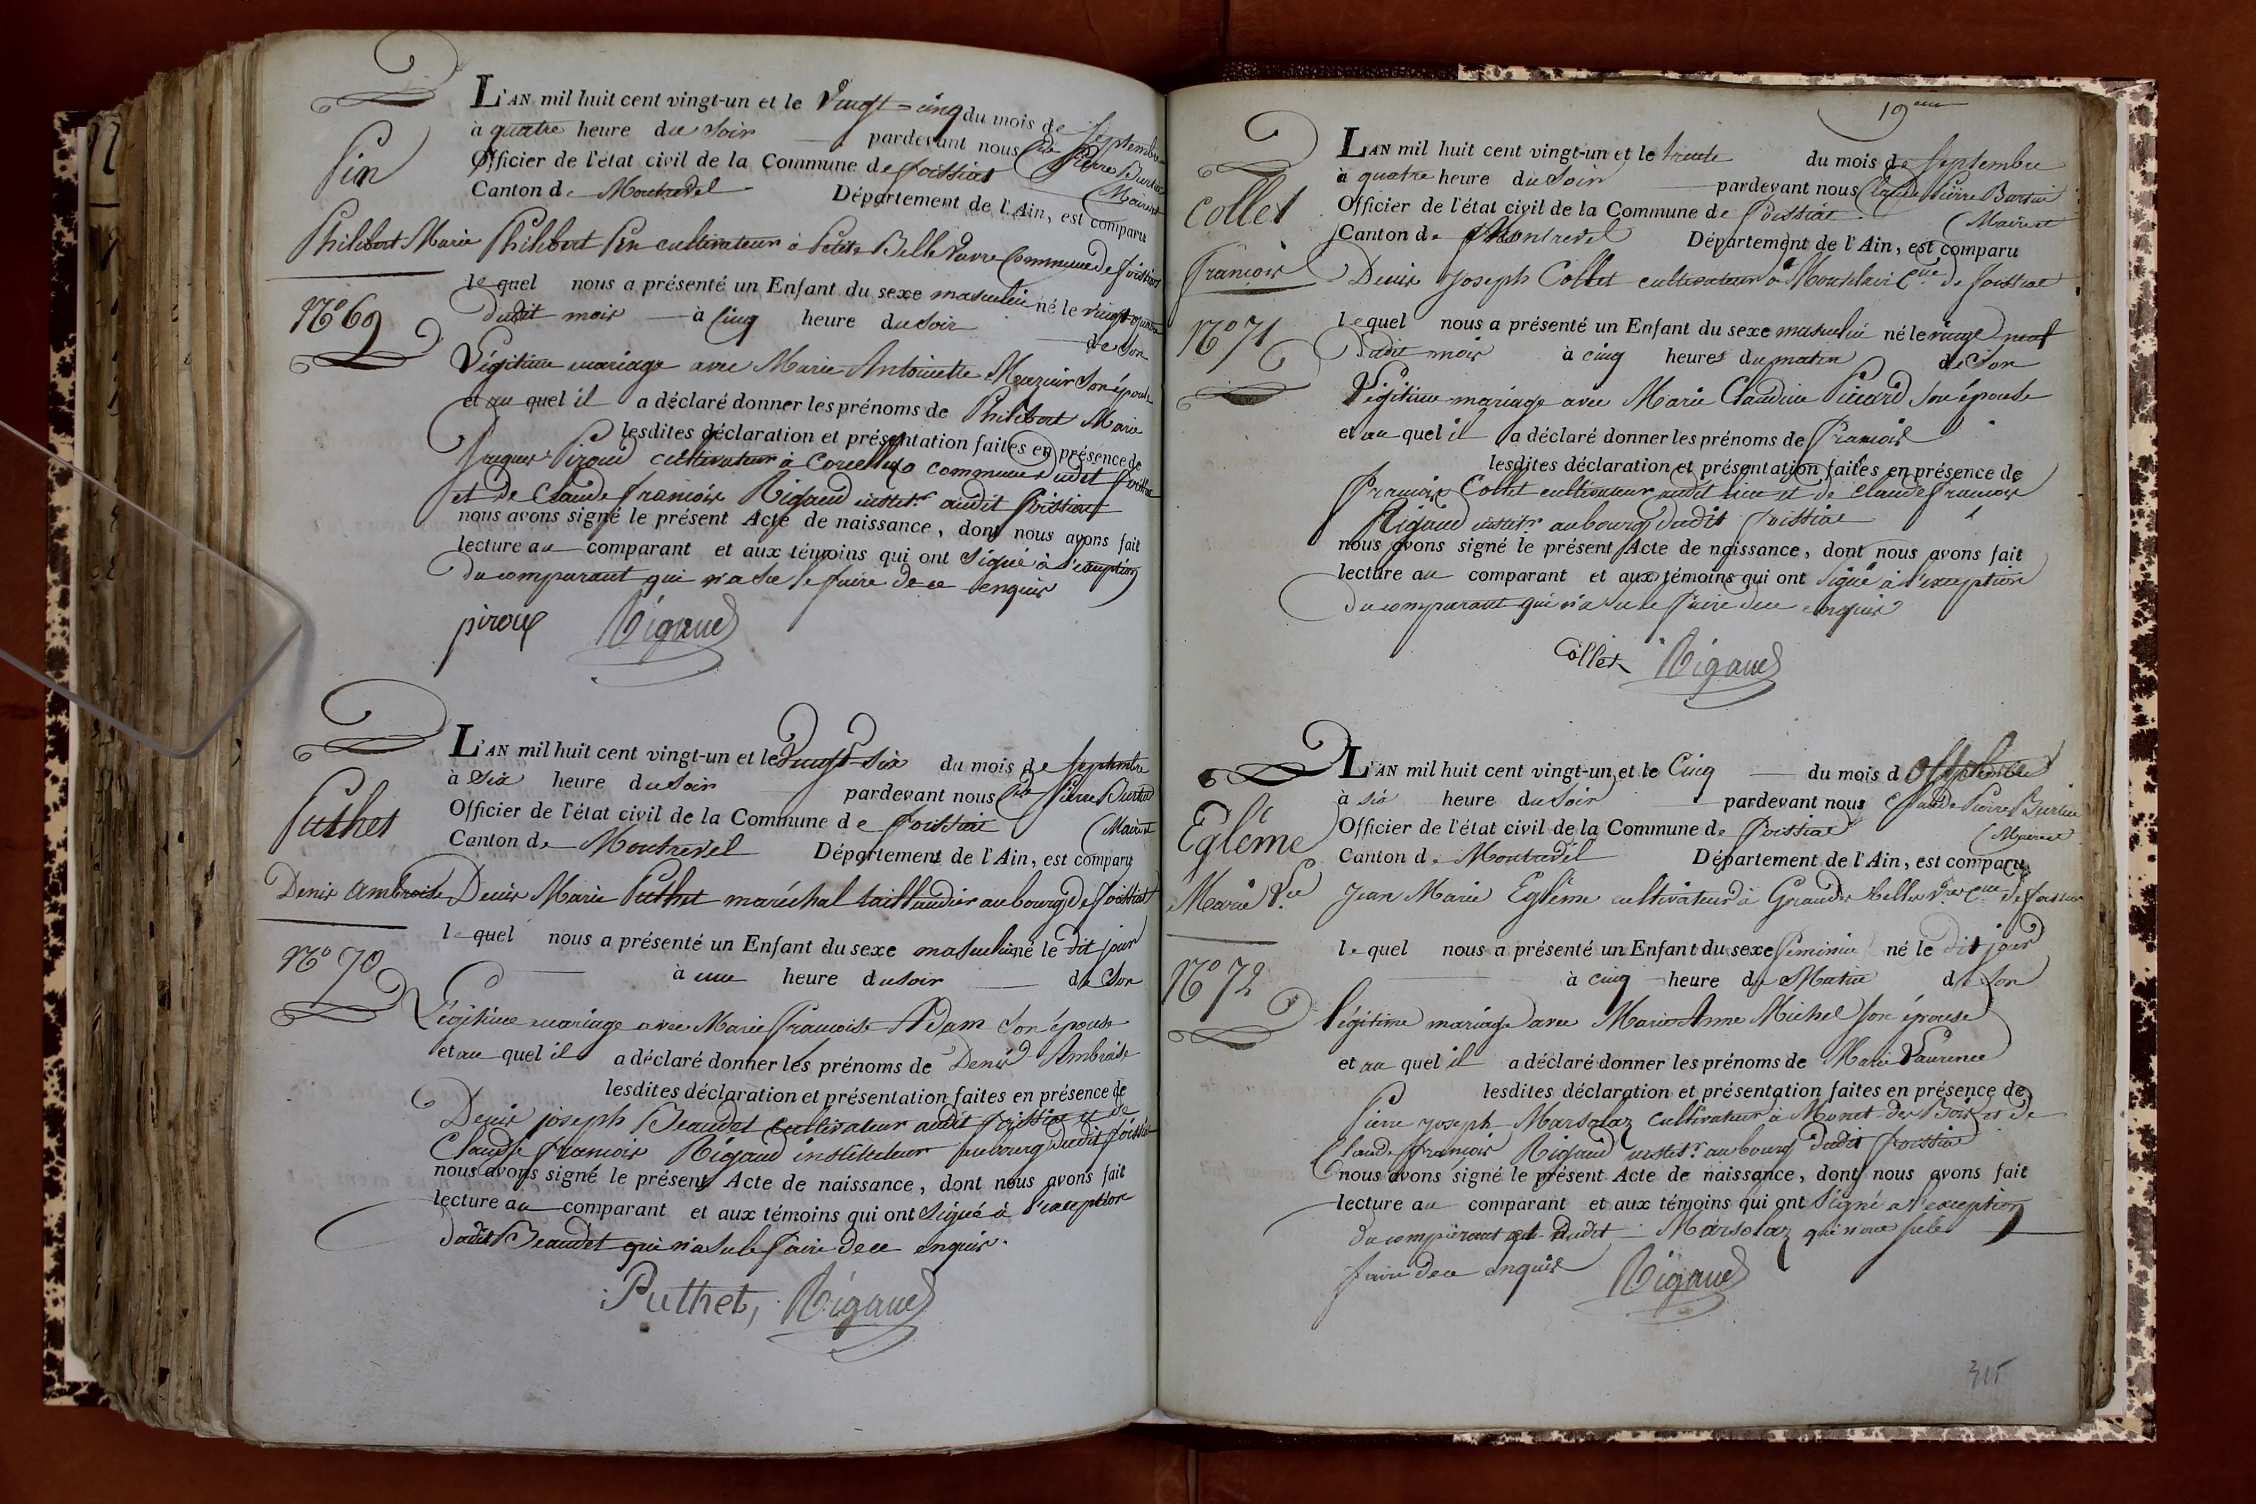 Pin
Philibert Marie
N.º 69
L'AN mil huit cent vingt-un et le Vingt-cinq du mois de Septembre
à quatre heure du Soir pardevant nous Cde Pierre
Officier de l'état civil de la Commune de foissiat Maire
Canton de Montrevel Département de l'Ain, est comparu
Philibert Pin cultivateur à Petite Belle Vavre Commune de foissiat
lequel nous a présenté un Enfant du sexe masculin né le vingt
dudit mois à Cinq heure du Soir de Son
Légitime mariage avec Marie Antoinette Son épouse
et au quel il a déclaré donner les prénoms de Philibert Marie
lesdites déclaration et présentation faites en présence de
Jacques Piroud cultivateur à commune dudit foissiat
et de Claude françois Rigaud instit.r audit foissiat
nous avons signé le présent Acte de naissance, dont nous avons fait
lecture au comparant et aux témoins qui ont Signé à l'exception
du comparant qui n'a Su le faire de ce enquis
piroud Rigaud
Puthet
Denis Ambroise
N.º 70
L'AN mil huit cent vingt-un et le Vingt-Six du mois de Septembre
à Six heure du Soir pardevant nous Cde Pierre
Officier de l'état civil de la Commune de foissiat Maire
Canton de Montrevel Département de l'Ain, est comparu
Denis Marie Puthet maréchal taillandier au bourg de foissiat
lequel nous a présenté un Enfant du sexe masculin né le dit jour
à une heure du soir de Son
Légitime mariage avec Marie françoise Adam Son épouse
et au quel il a déclaré donner les prénoms de Denis Ambroise
lesdites déclaration et présentation faites en présence de
Denis joseph Beaudet cultivateur audit foissiat et de
Claude françois Rigaud instituteur au bourg dudit foissiat
nous avons signé le présent Acte de naissance, dont nous avons fait
lecture au comparant et aux témoins qui ont Signé à l'exception
dudit Beaudet qui n'a Su le faire de ce enquis.
Puthet, Rigaud
19eme
Collet
françois
N.º 71
L'AN mil huit cent vingt-un et le trente du mois de Septembre
à quatre heure du Soir pardevant nous Claude Pierre
Officier de l'état civil de la Commune de foissiat Maire
Canton de Montrevel Département de l'Ain, est comparu
Denis Joseph Collet cultivateur à Cne de foissiat
lequel nous a présenté un Enfant du sexe masculin né le vingt neuf
dudit mois à cinq heures du matin de Son
Légitime mariage avec Marie Claudine Picard Son épouse
et au quel il a déclaré donner les prénoms de françois
lesdites déclaration et présentation faites en présence de
françois Collet cultivateur audit lieu et de Claude françois
Rigaud instit.r au bourg dudit foissiat
nous avons signé le présent Acte de naissance, dont nous avons fait
lecture au comparant et aux témoins qui ont Signé à l'exception
du comparant qui n'a su le faire de ce enquis
Collet Rigaud
Egléme
Marie L.ce
N.º 72
L'AN mil huit cent vingt-un et le Cinq du mois d'
à six heure du Soir pardevant nous Claude Pierre
Officier de l'état civil de la Commune de foissiat Maire
Canton de Montrevel Département de l'Ain, est comparu
Jean Marie Egléme cultivateur à Grande Belle Cne de foissiat
lequel nous a présenté un Enfant du sexe féminin né le dit jour
à cinq heure du Matin de Son
légitime mariage avec Marie Anne Michel Son épouse
et au quel il a déclaré donner les prénoms de Marie Laurence
lesdites déclaration et présentation faites en présence de
Pierre joseph Marsolaz cultivateur à et de
Claude françois Rigaud instit.r au bourg dudit foissiat
nous avons signé le présent Acte de naissance, dont nous avons fait
lecture au comparant et aux témoins qui ont Signé à l'exception
du comparant et dudit Marsolaz qui n'ont su le
faire de ce enquis Rigaud
315